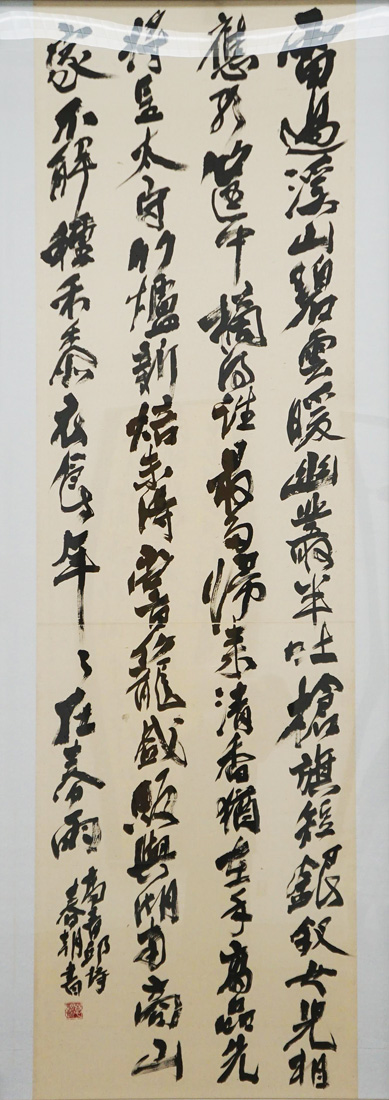 雷過溪山碧雲暖幽叢半吐槍旗短銀釵女兒相
應歌筐中摘得誰最多歸來清香猶在手高品先
將呈太守竹爐新焙未得嘗籠盛販與湖南商山
家不解種禾黍衣食年々在春雨
高青邱詩
春朝書